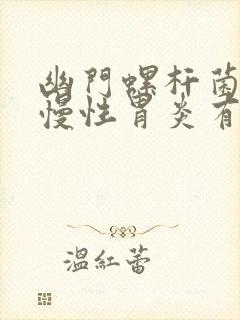 幽門螺杆菌
慢性胃炎有
溫紅蕾